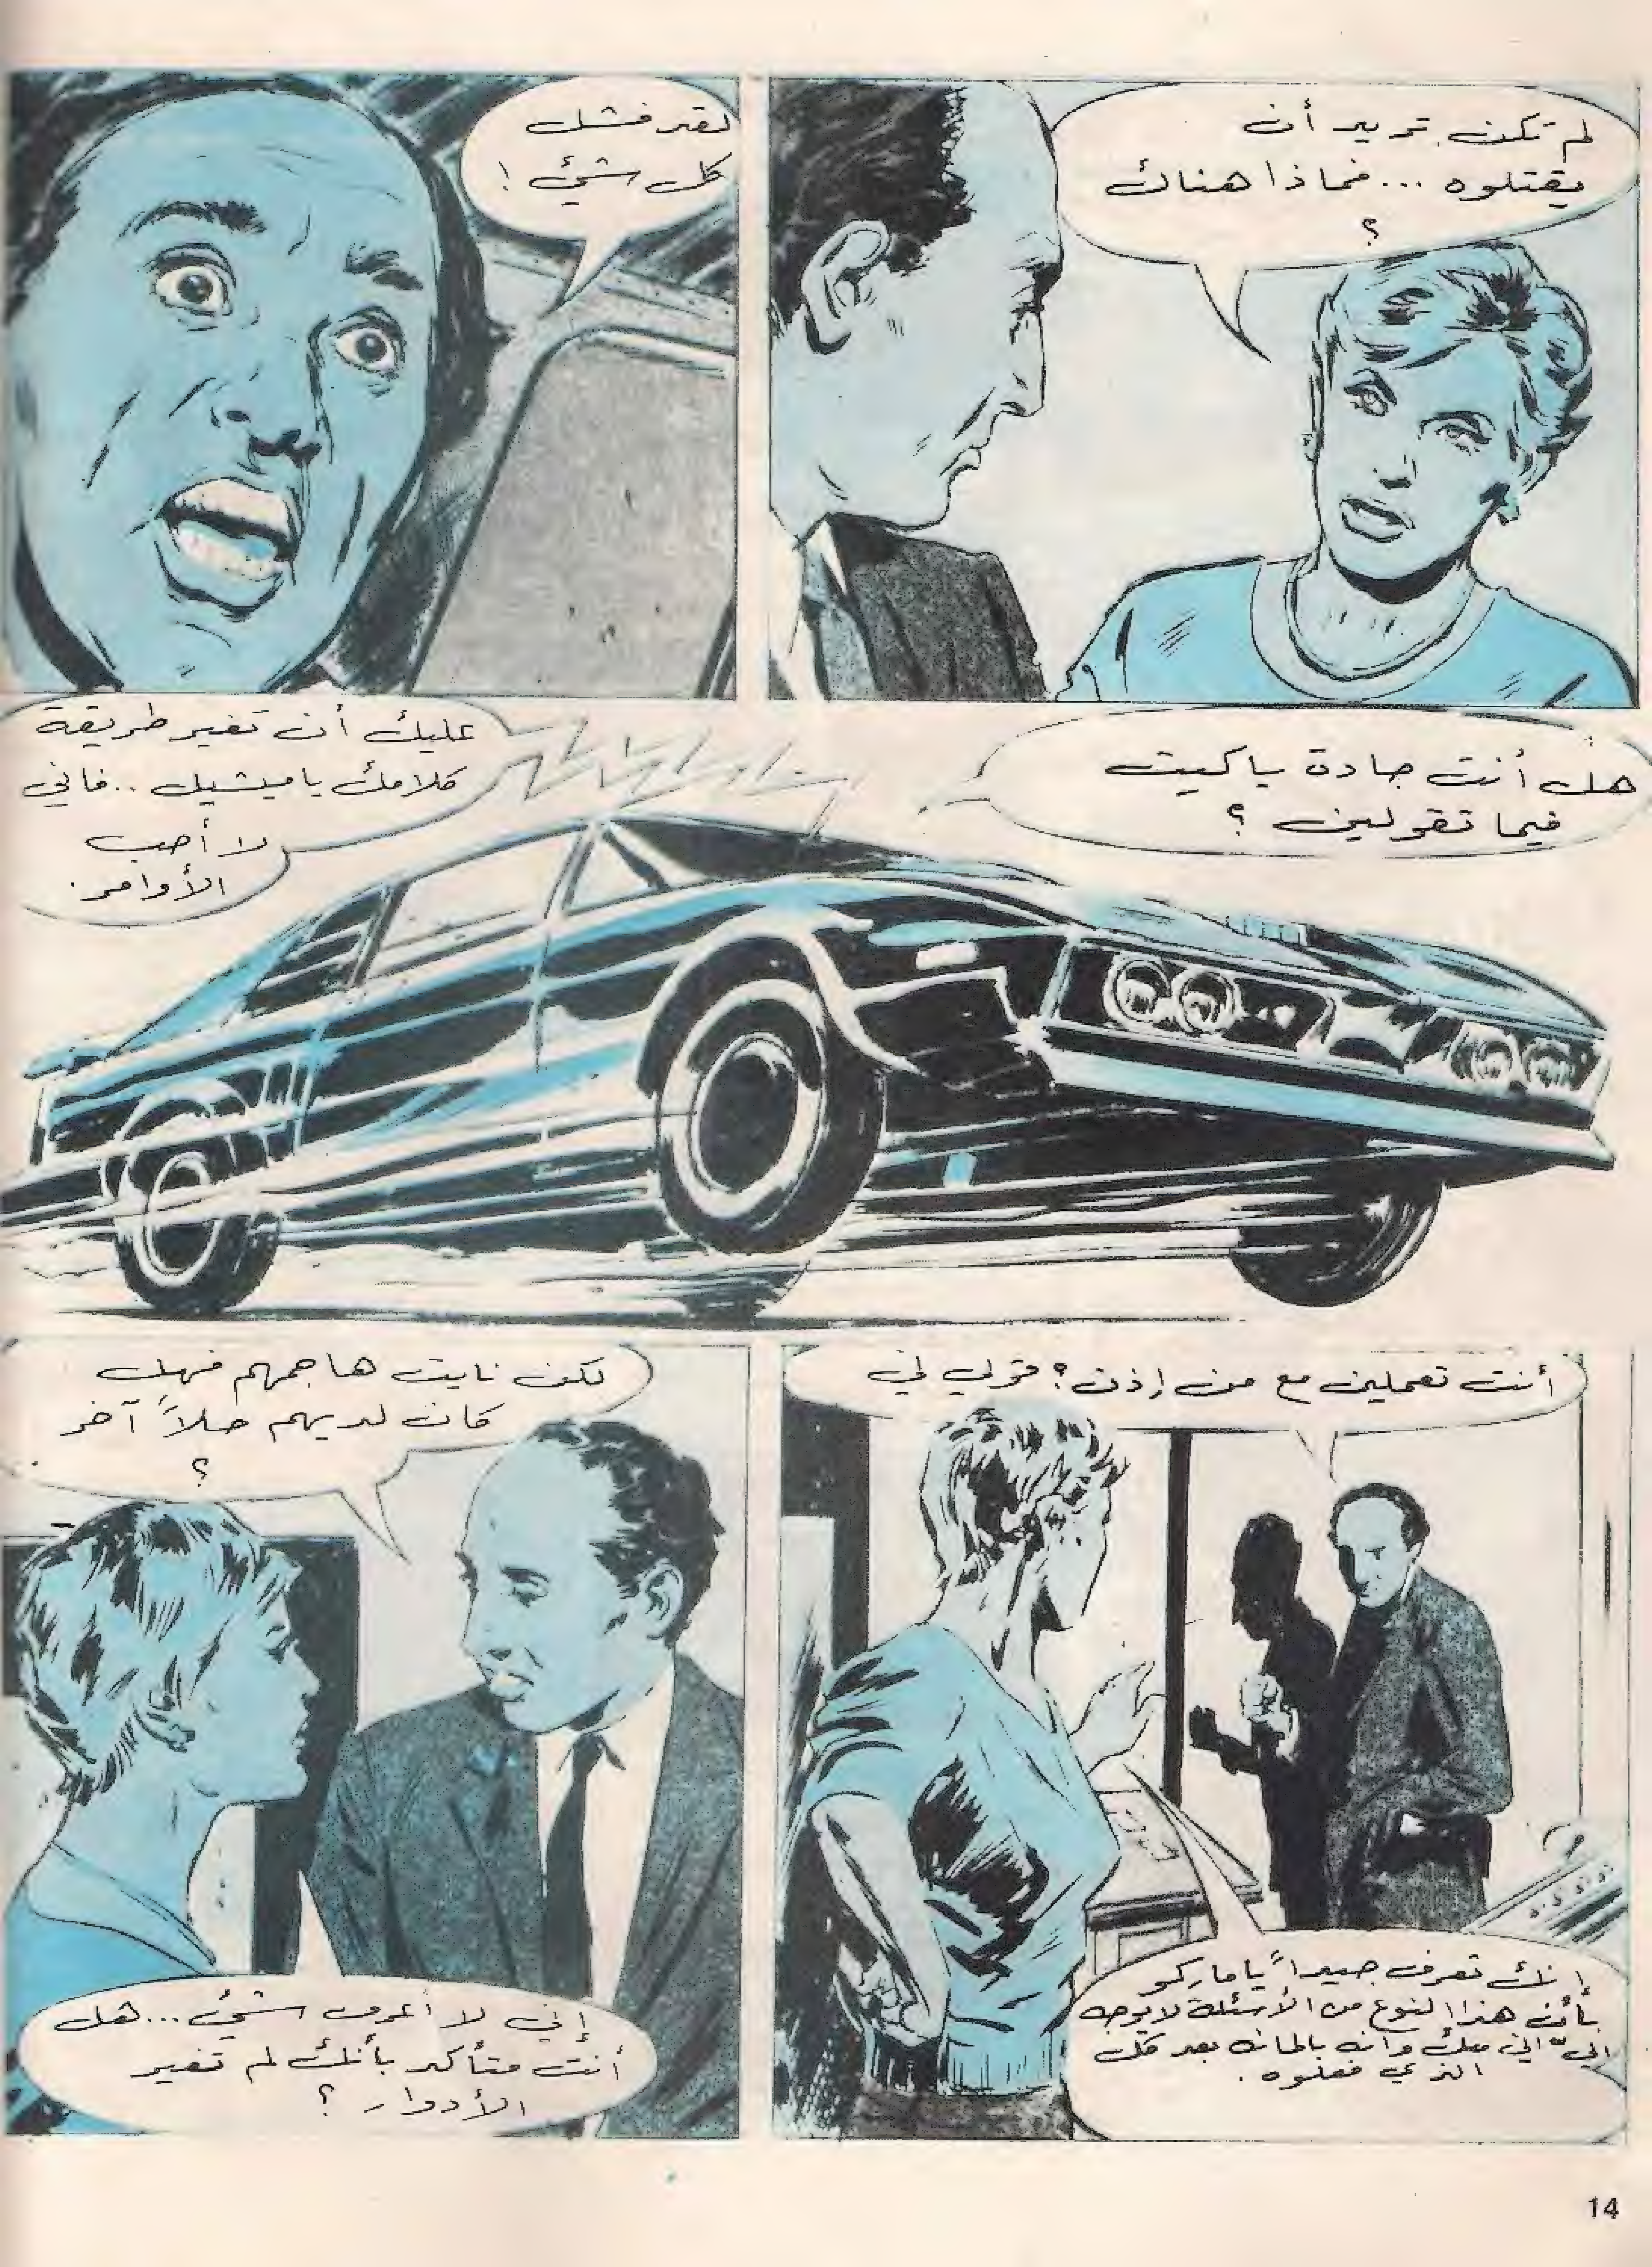 لم تكن تريد أن
يقتلوه ... فماذا هناك
؟
لقد فشل
كل شيء !
هل أنت جادة يا كيت
فيما تقولين ؟
عليك أن تغير طريقة
كلامك يا ميشيل .. فاني
لا أحب
الأوامر .
أنت تعملين مع من إذن ؟ قولي لي
إنك تعرف جيداً يا ماركو
بأن هذا النوع من الأسئلة لا يوجه
اليّ الي منك وانه بعد كل
الذي فعلوه .
لكن نايت هاجمهم فهل
كان لديهم حلاً آخر
؟
إني لا أعرف شيء ... هل
أنت متأكد بأنك لم تغير
الأدوار ؟
14